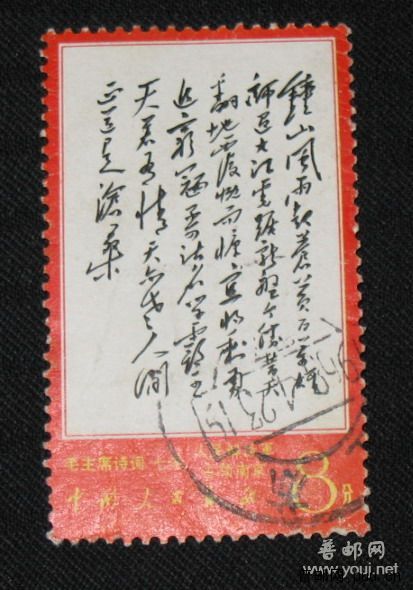 鐘山風雨起蒼黄百万雄
師过大江虎踞龍盤今勝昔天
翻地覆慨而慷宜将剩勇
追窮寇不可沽名学霸王
天若有情天亦老人間
正道是滄桑
毛主席诗词 七律
南京
中国人民邮政
8分
普邮网
www.youj.net